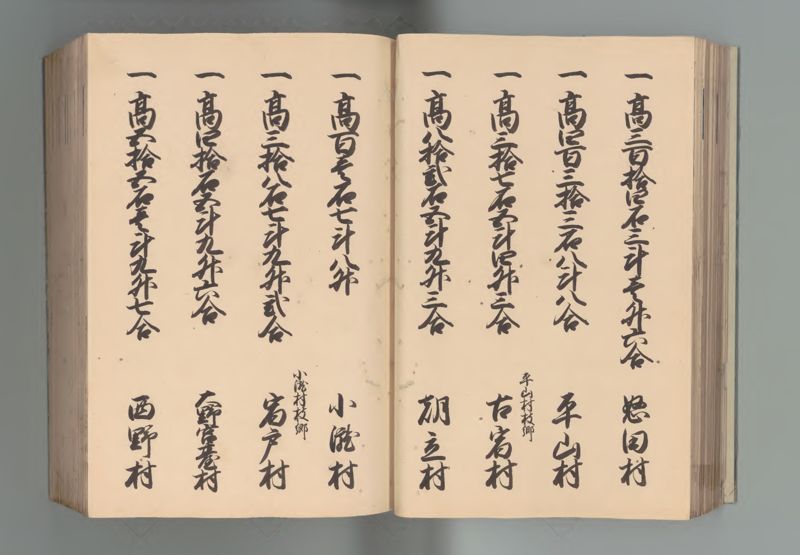 一 高三百拾四石三斗壱升六合
村
一 高四百三拾三石八斗八合
平山村
一 高三拾七石五斗四升三合
平山村枝郷
古宿村
一 高八拾弐石五斗九升三合
朝立村
一 高百壱石七斗八升
小瀧村
一 高三拾八石七斗九升弐合
小瀧村枝郷
宿戸村
一 高四拾石五斗九升六合
大野村
一 高五拾五石壱斗九升七合
西野村